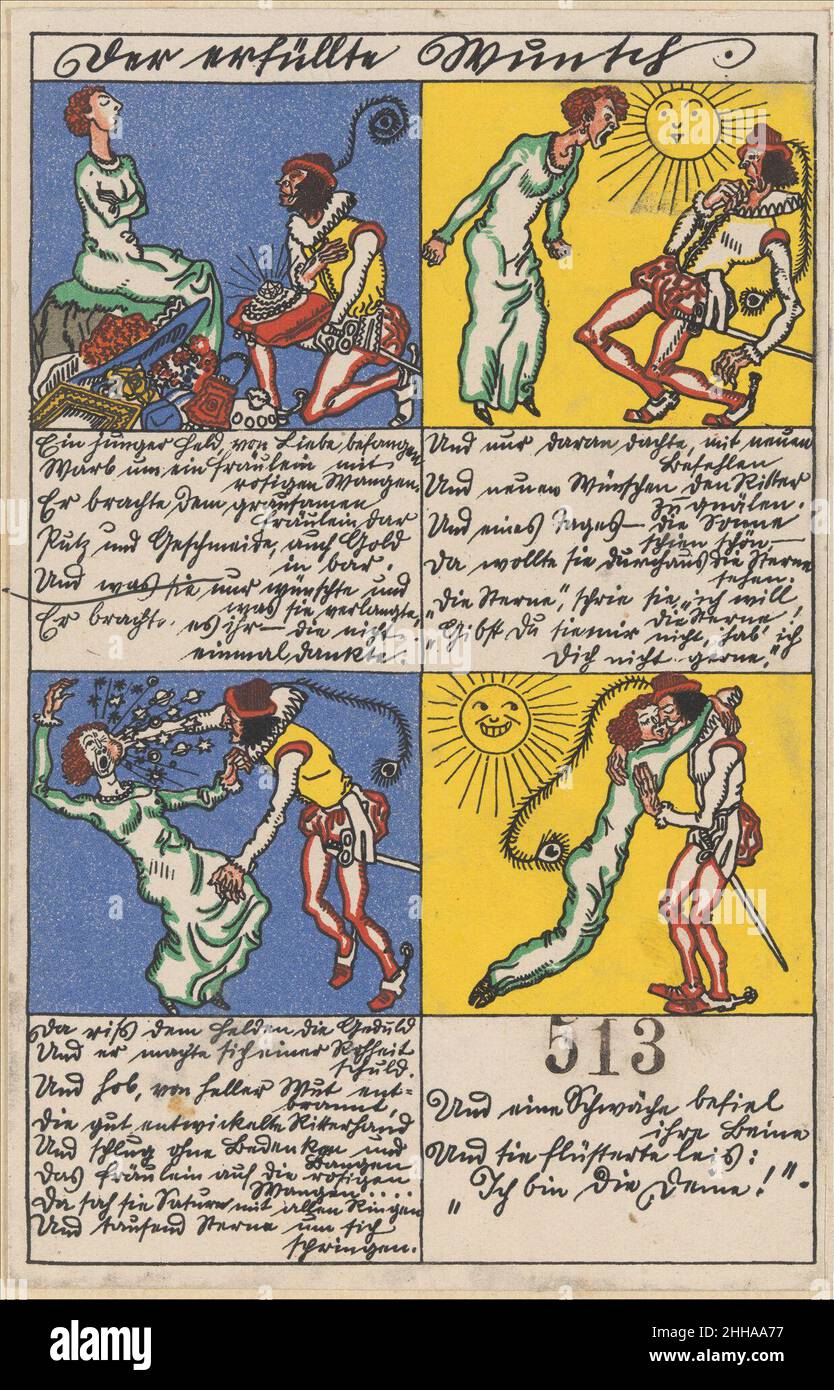 Der erfüllte Wunsch.
Ein junger Held, von Liebe befangen
Warb um ein Fräulein mit
rosigen Wangen.
Er brachte dem grausamen
Fräulein dar
Putz und Geschmeide, auch Gold
in bar.
Und was sie nur wünschte und
was sie verlangte,
Er brachte es ihr – die nicht
einmal dankte.
Und nur daran dachte, mit neuen
Befehlen
Und neuen Wünschen den Ritter
zu quälen.
Und eines Tages – die Sonne
schien schön –
Da wollte sie durchaus die Sterne
sehen.
„Die Sterne", schrie sie, „ich will
die Sterne!
Gibst Du sie mir nicht, hab' ich
Dich nicht gerne."
Da riss dem Helden die Geduld
Und er machte sich einer Roheit
schuld.
Und hob, von heller Wut ent-
brannt,
Die gut entwickelte Ritterhand
Und schlug ohne Bedenken und
Bangen
Das Fräulein auf die rosigen
Wangen....
Da sah sie Saturn mit allen Ringen
Und tausend Sterne um sich
springen.
513
Und eine Schwäche befiel
ihre Beine
Und sie flüsterte leis:
„Ich bin die Deine!".
alamy
Image ID: 2HHAA77
www.alamy.com